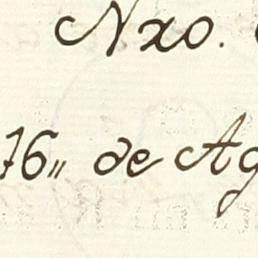 Nxo.
76,, de Ag